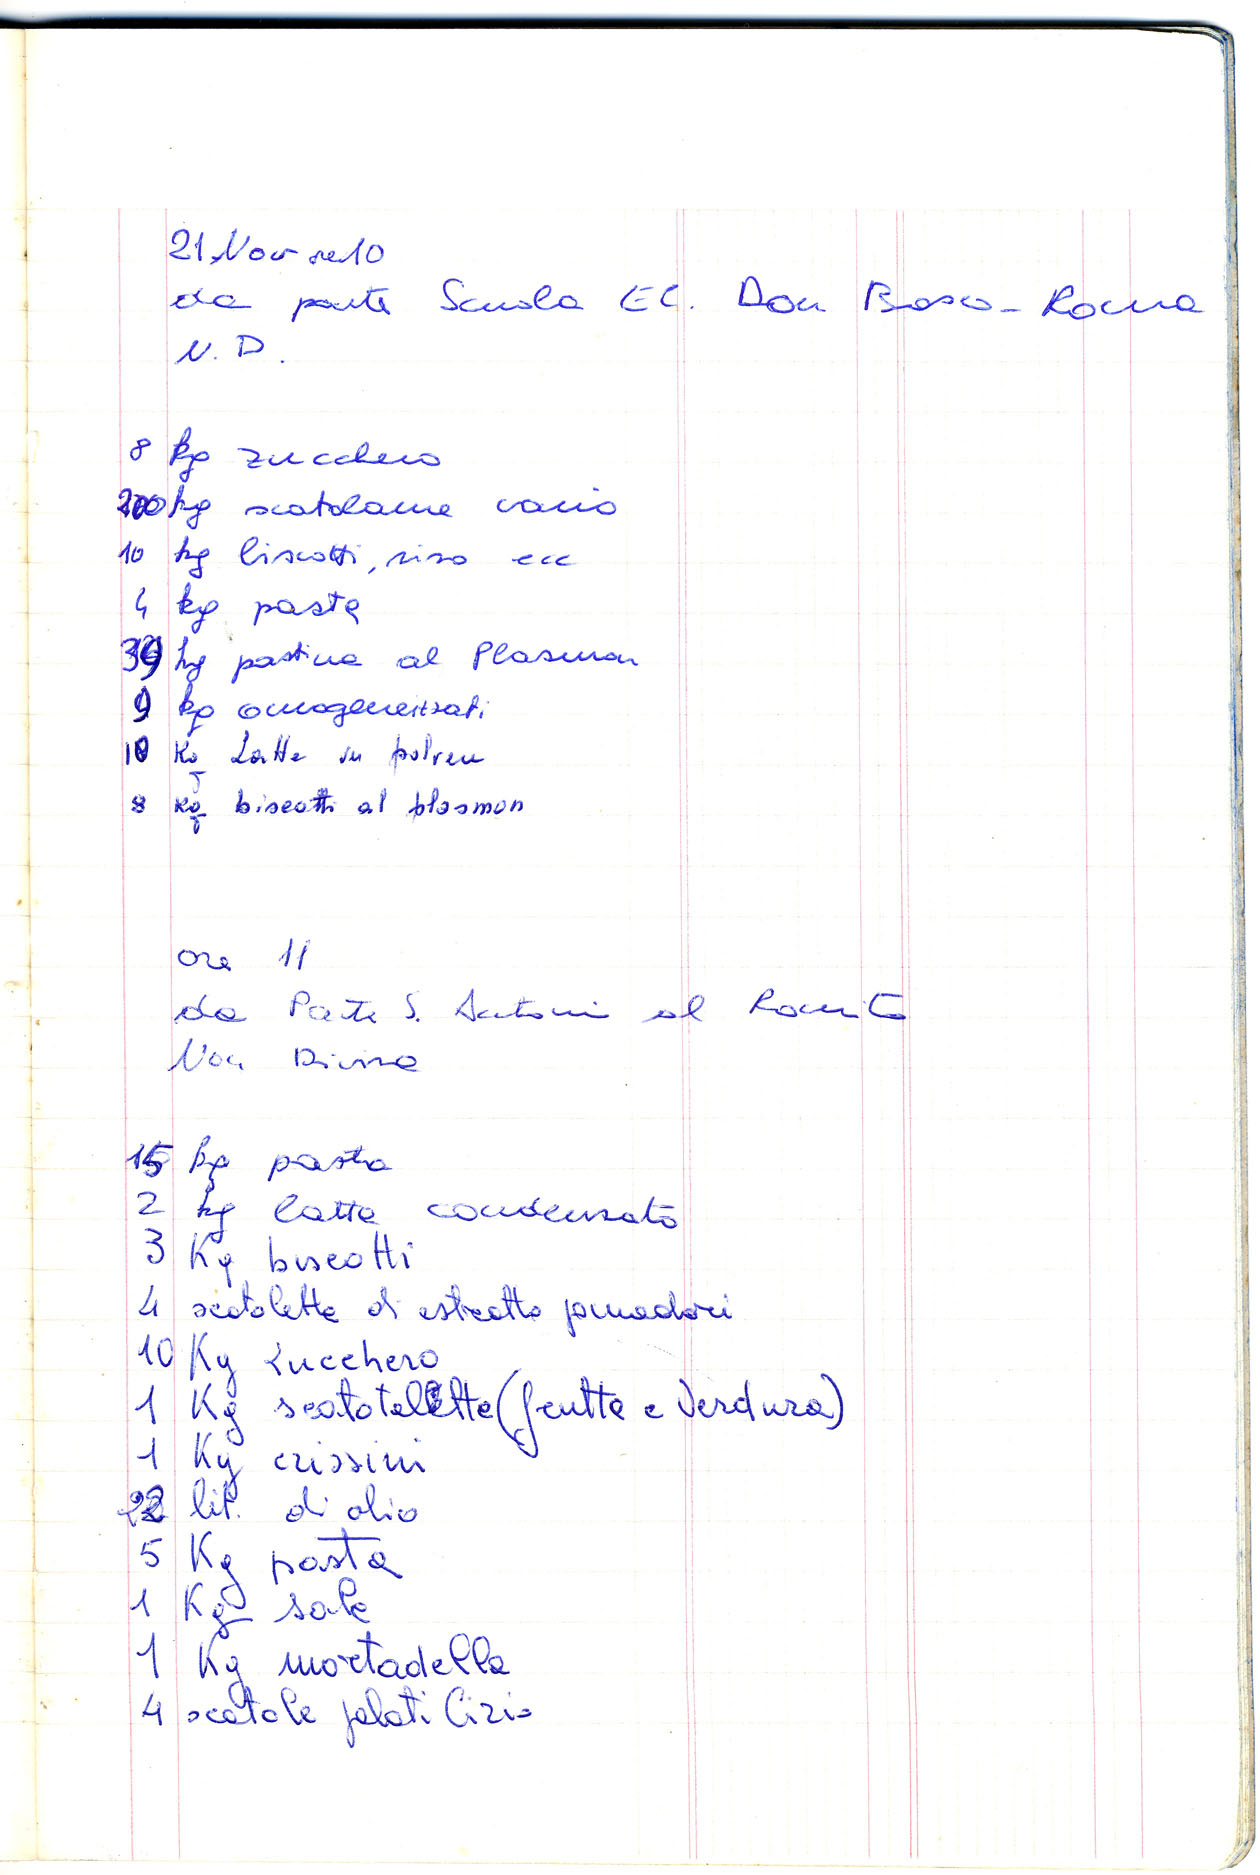 21 Nov ore 10
da parte Scuola El. Don Bosco - Roma
N. D.
8 kg zucchero
200 kg scatolame vario
10 kg biscotti, riso ecc
4 kg pasta
39 kg pastina al Plasmon
9 kg omogeneizzati
10 Kg Latte in polvere
8 Kg biscotti al plasmon
ore 11
da Parte S. Antonio al Romito
Non Divisa
15 kg pasta
2 kg latte condensato
3 Kg biscotti
4 scatolette di estratto pomodori
10 Kg zucchero
1 Kg (frutta e Verdura)
1 Kg crissini
22 lit. di olio
5 Kg pasta
1 Kg sale
1 Kg mortadella
4 scatole pelati Cirio